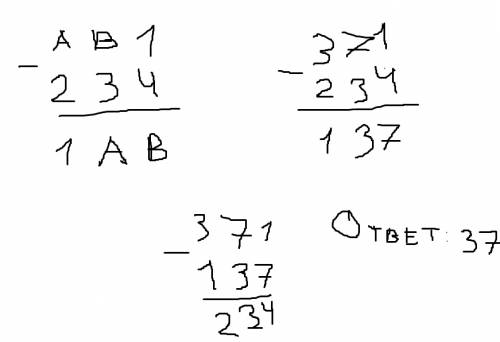 А В 1
- 2 3 4
1 А В
371
- 234
137
371
- 137
234
Ответ: 37